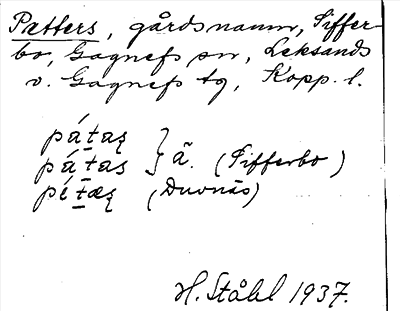 Pætters, gårdsnamn, Siffer-
bo, Gagnefs sn, Leksands
o. Gagnefs tg, Kopp. l.
pátas̨
pátas } ä. (Sifferbo)
pétæs̨ (Duvnäs)
H. Ståhl 1937.